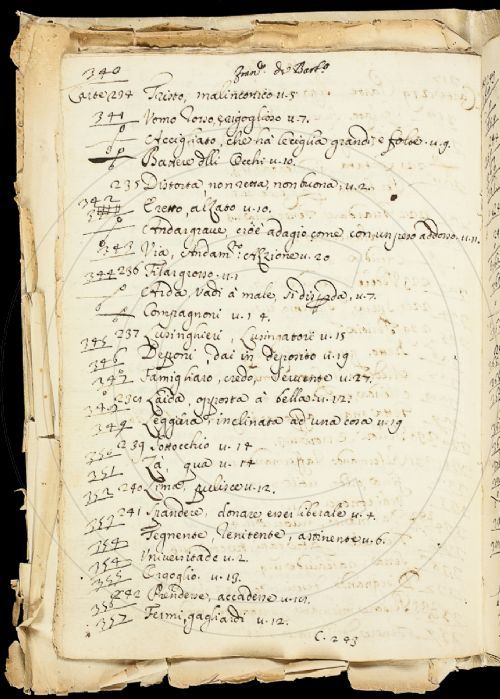 340 Franc. de Barb.
Carte 234 Tristo, malinconico u. 5
341 Uomo grosso, orgoglioso u. 7.
Accigliato, che ha le ciglia grandi e folte u. 9.
Battere dlli Occhi u. 10.
235 Distorta, non retta, non buona, u. 2.
342 Eretto, alzato u. 10.
Andar graue, cioè adagio come con un peso addosso, u. 11.
343 Via, Andamto: Azzione u. 20
344 236 Filar grosso. u. 1
Vada à male, si u. 7.
Compagnoni u. 1 4.
345 237 Lusinghieri, Lusingatori u. 15
346 Deponi, dai in deposito u. 19
347 Famigliaro, credo, Seruente u. 27.
348 238 Laida, opposta à bella u. 12.
349 Leggiera inclinata ad una cosa u. 19
350 239 Sottocchio u. 14
351 Là, qua u. 14
352 240 Lima, pulisce u. 12.
353 241 Spandere, donare esser liberale u. 4.
354 Tegnente, astinente u. 6.
354 Uniuersitade u. 2.
355 Orgoglio. u. 13.
356 242 Prendere, accadere u.
357 Fermi, gagliardi u. 12.
C. 243